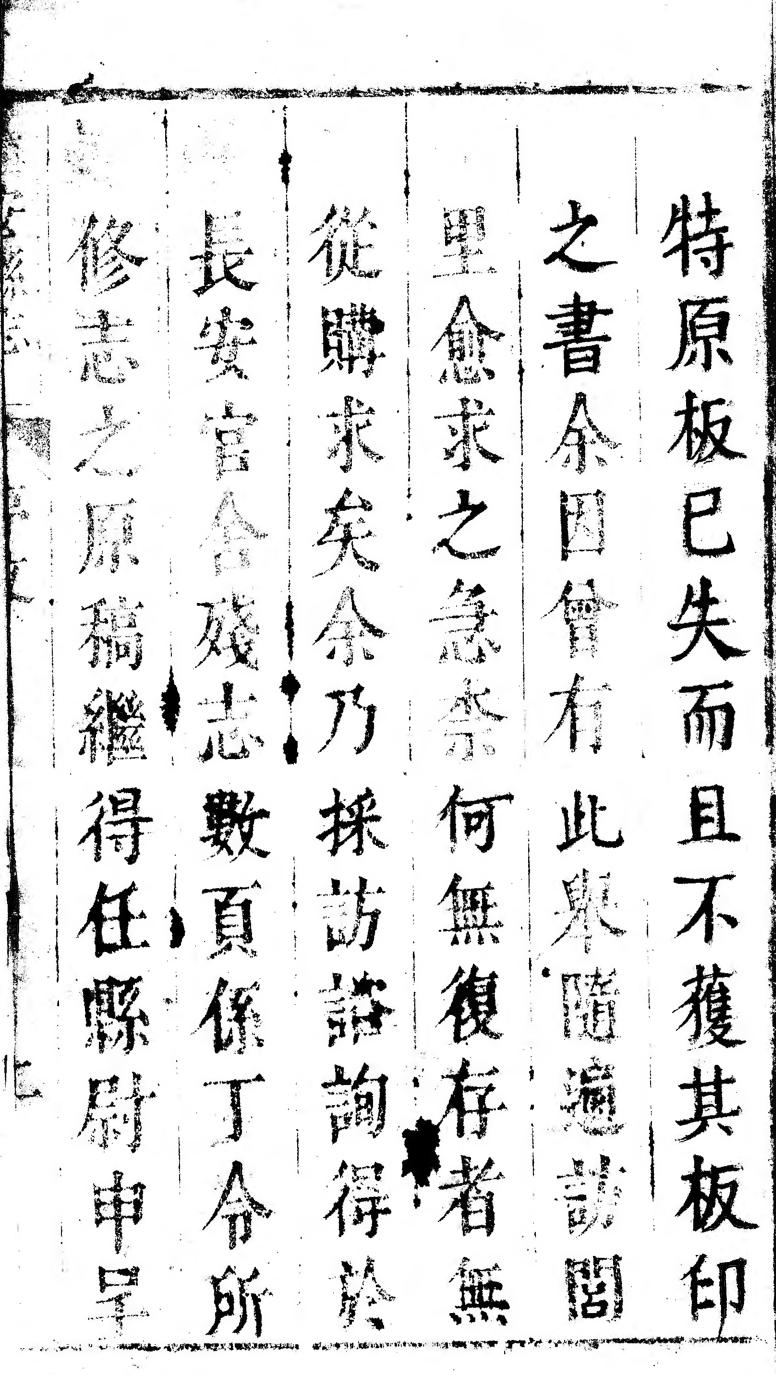 特原板已失而且不獲其板印
之書余因曾有此舉隨遍訪閭
里愈求之急柰何無復存者無
從購求矣余乃採訪諮詢得於
長安官舍殘志數頁係丁令所
修志之原稿繼得任縣尉申呈